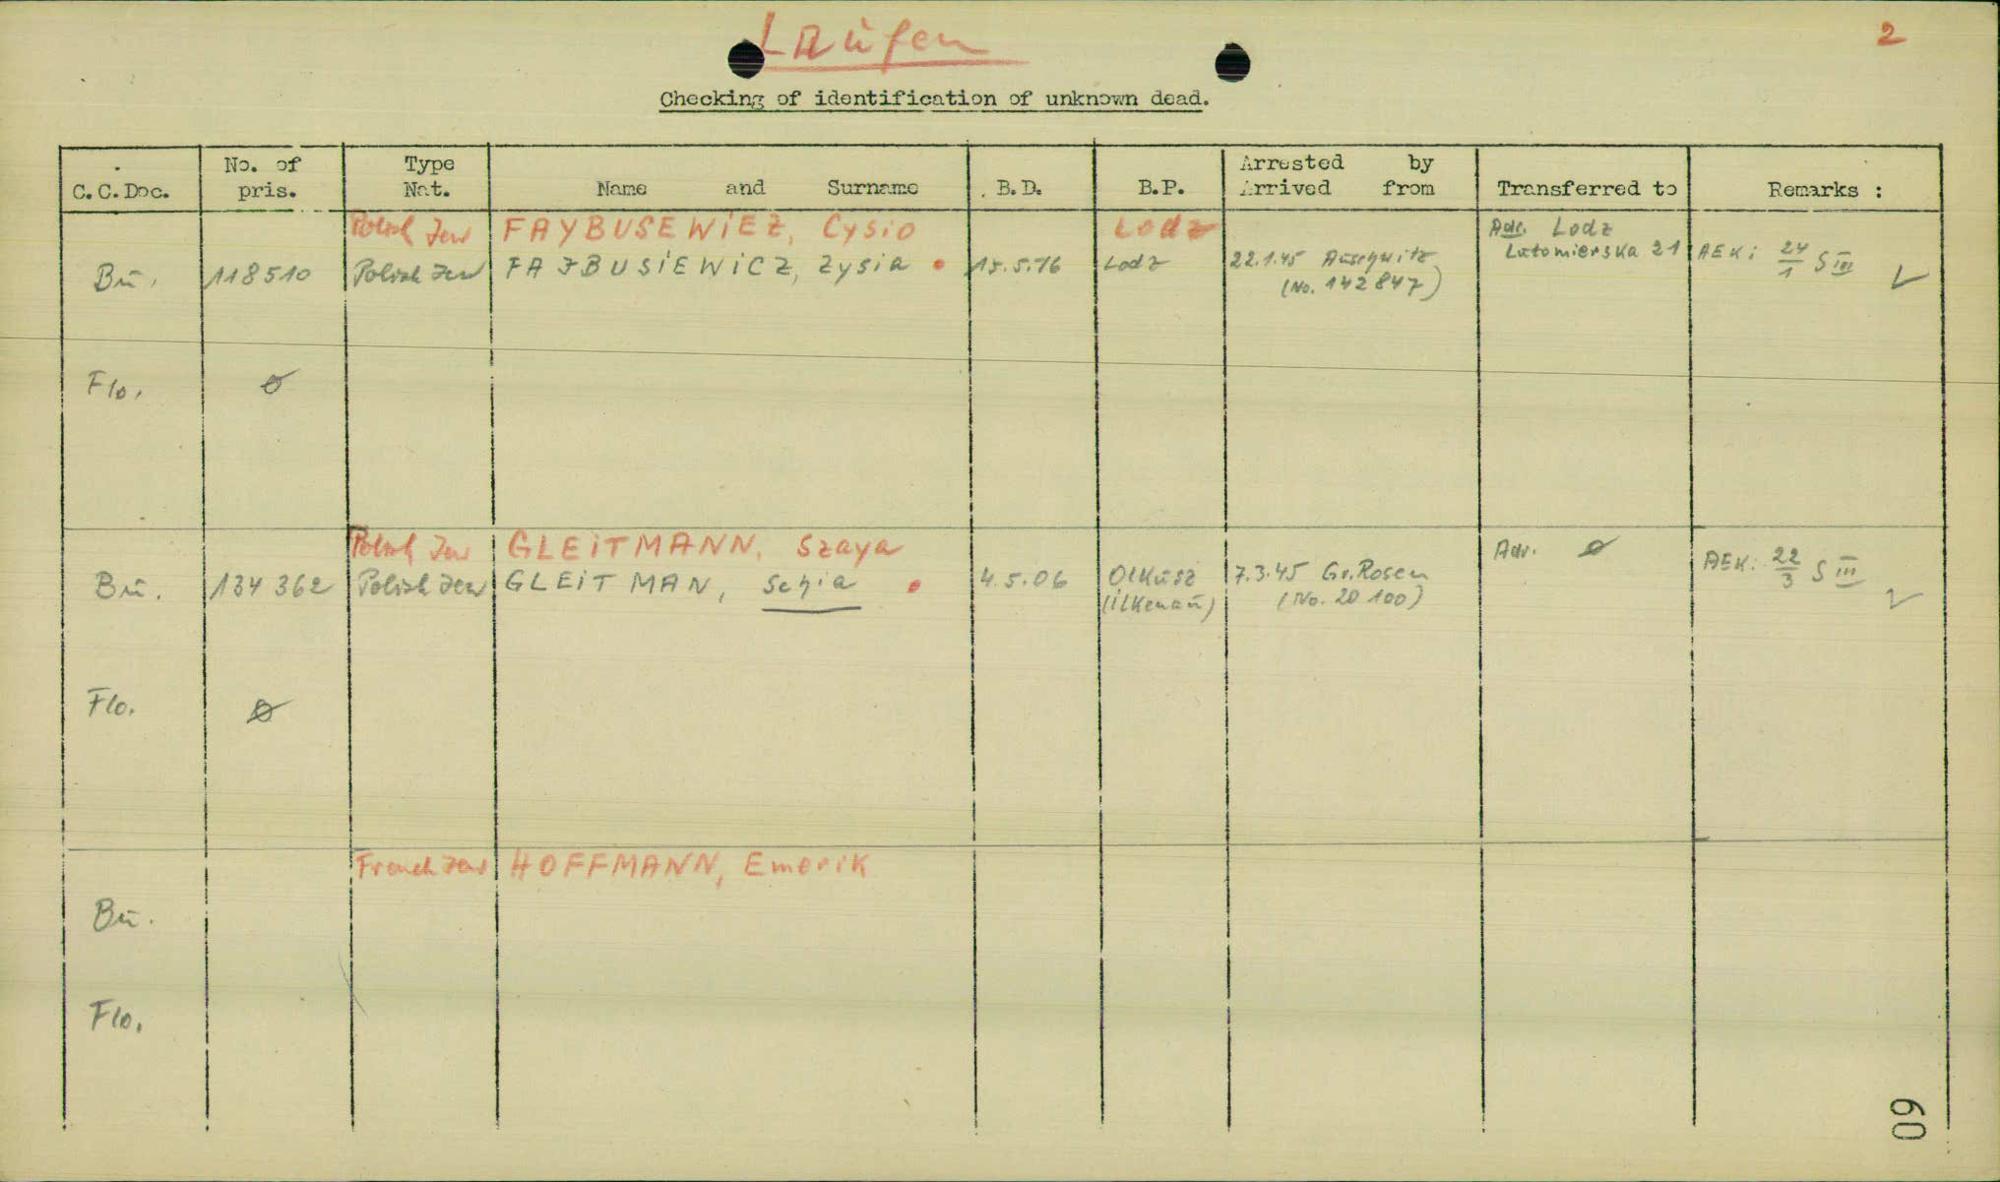 Laufen
2
Checking of identification of unknown dead.
C.C.Doc.
No. of pris.
Type Nat.
Name and Surname
B.D.
B.P.
Arrested by
Arrived from
Transferred to
Remarks :
Polish Jew FAYBUSEWiEZ, Cysio Lodz Adr. Lodz
Lutomierska 21
Bu. 118510 Polish Jew FAJBUSiEWiCZ, Zysia 15.5.16 Lodz 22.1.45 Auschwitz AEK: 24/1 S III
(No. 142847)
Flo. ø
Polish Jew GLEiTMANN, Szaya Adr. ø
Bu. 134 362 Polish Jew GLEiTMAN, Schia 4.5.06 Olkusz 7.3.45 Gr.Rosen AEK: 22/3 S III
(ilkenau) (No. 20 100)
Flo. ø
French Jew HOFFMANN, Emerik
Bu.
Flo.
60